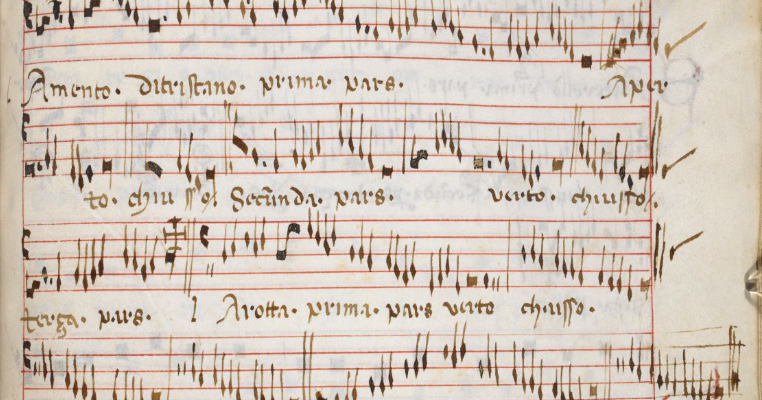 Amento. ditristano. prima. pars. Aper
to. chiusso Secunda. pars. verto. chiusso.
terza. pars. l Arotta. prima. pars verto chiusso.